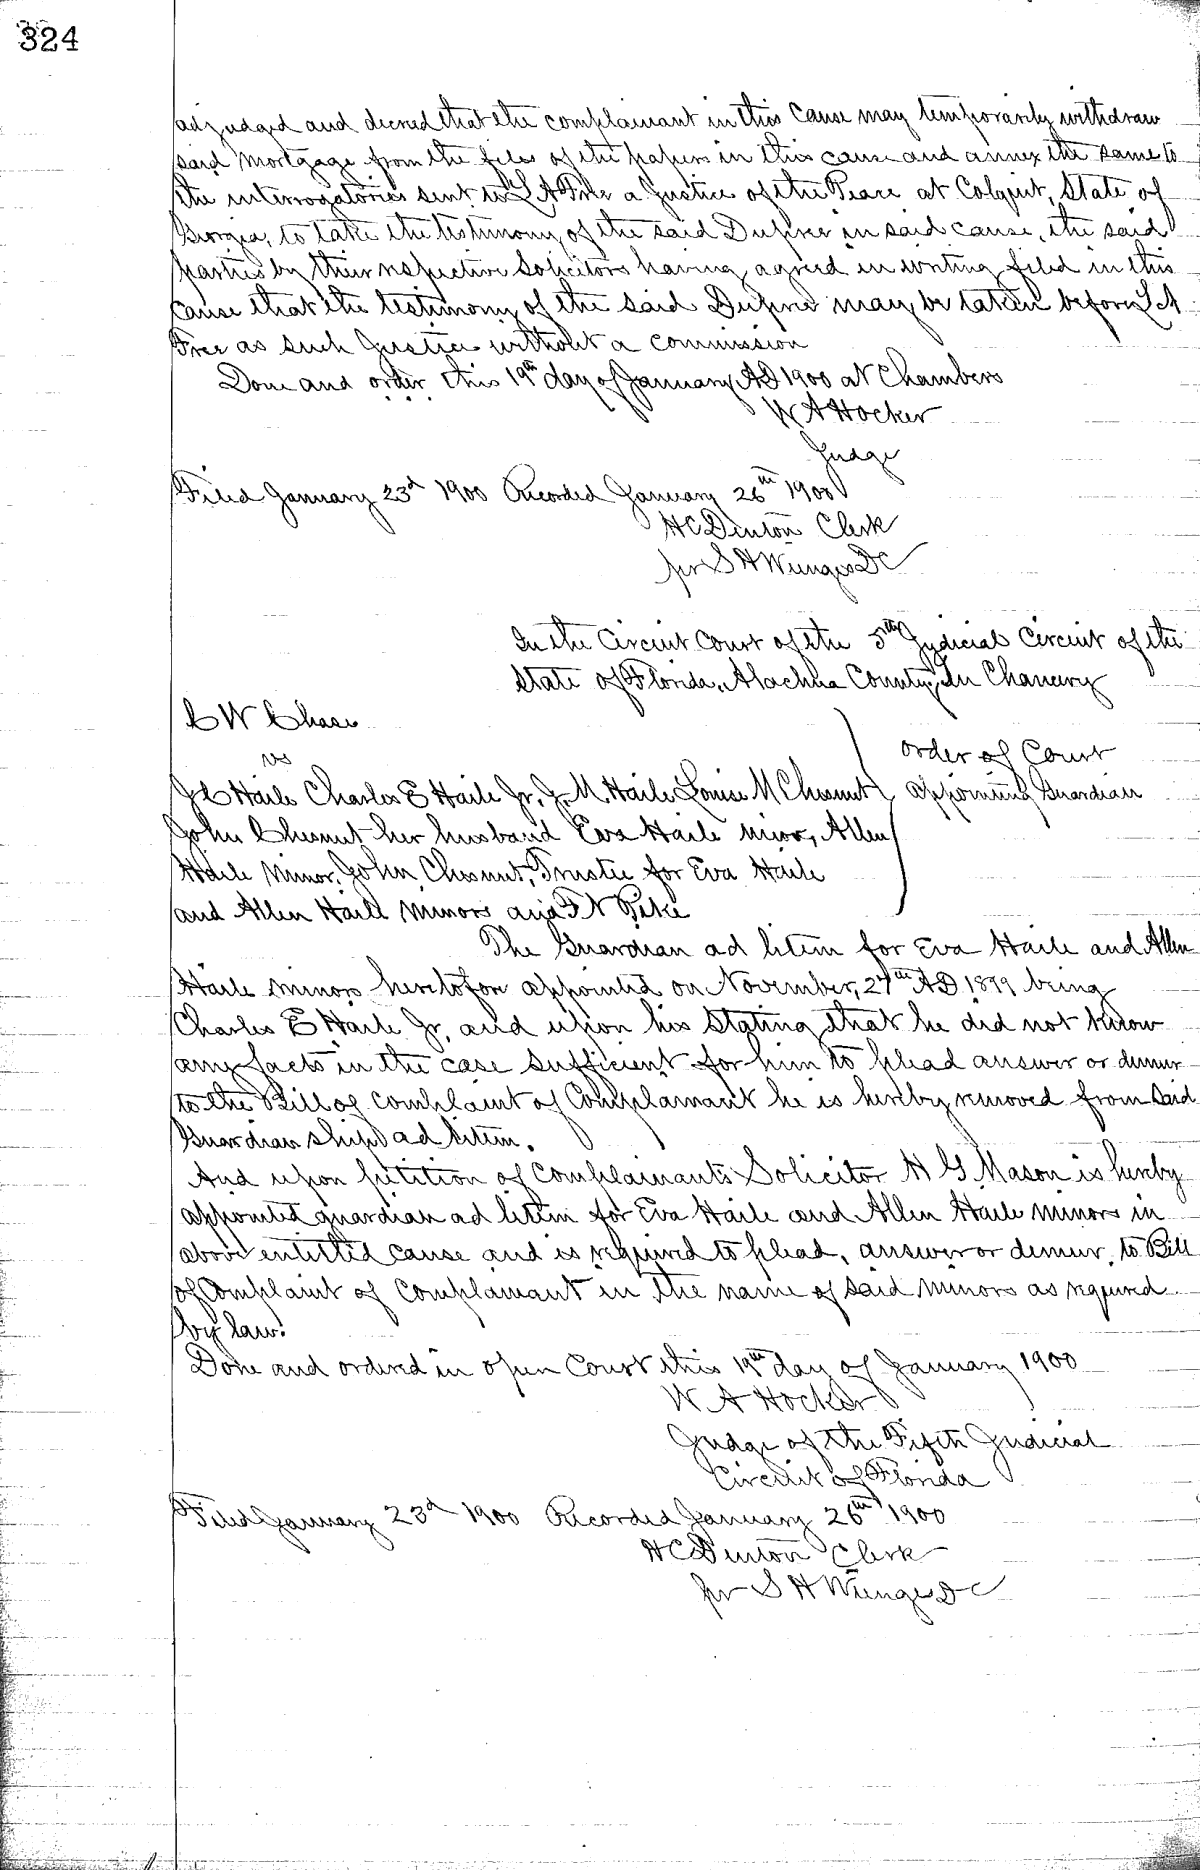 324
adjudged and decreed that the complainant in this cause may temporarily withdraw
said mortgage from the files of the papers in this cause and annex the same to
the interrogatories sent to L A Free a Justice of the Peace at Colquit, State of
Georgia, to take the testimony of the said Dupree in said cause, the said
parties by their respective Solicitors having agreed in writing filed in this
cause that the testimony of the said Dupree may be taken before L A
Free as such Justice without a commission
Done and order this 19th day of January AD 1900 at Chambers
W A Hocker
Judge
Filed January 23d 1900 Recorded January 26th 1900
H C Denton Clerk
per S H Wienges DC
In the Circuit Court of the 5th Judicial Circuit of the
State of Florida, Alachua County, In Chancery
C W Chase
vs
J C Haile Charles E Haile Jr, J. M. Haile Louise M Chesnut
John Chesnut her husband Eva Haile minor, Allen
Haile Minor, John Chesnut, Trustee for Eva Haile
and Allen Haile minors and F N Pike
order of Court
appointing Guardian
The Guardian ad litem for Eva Haile and Allen
Haile minors heretofore appointed on November, 27th AD 1899 being
Charles E Haile Jr. and upon his stating that he did not know
any facts in the case sufficient for him to plead answer or demur
to the Bill of complaint of Complainant he is hereby removed from said
Guardian ship ad litem.
And upon petition of Complainants Solicitor H G Mason is hereby
appointed guardian ad litem for Eva Haile and Allen Haile minors in
above entitled cause and is required to plead, answer or demur, to Bill
of Complaint of Complainant in the name of said minors as required
by law.
Done and ordered in open Court this 19th day of January 1900
W A Hocker
Judge of the Fifth Judicial
Circuit of Florida
Filed January 23d 1900 Recorded January 26th 1900
H C Denton Clerk
per S H Wienges DC